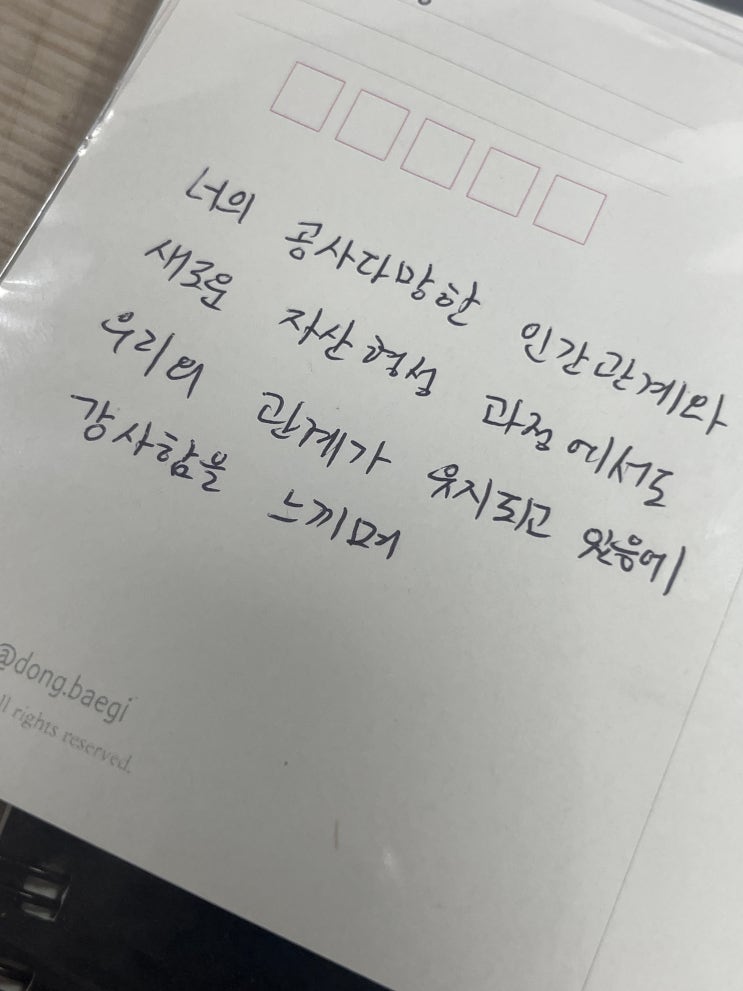 너의 공사다망한 인간관계와
새로운 자산형성 과정에서도
우리의 관계가 유지되고 있음에
감사함을 느끼며
@dong.baegi
ll rights reserved.